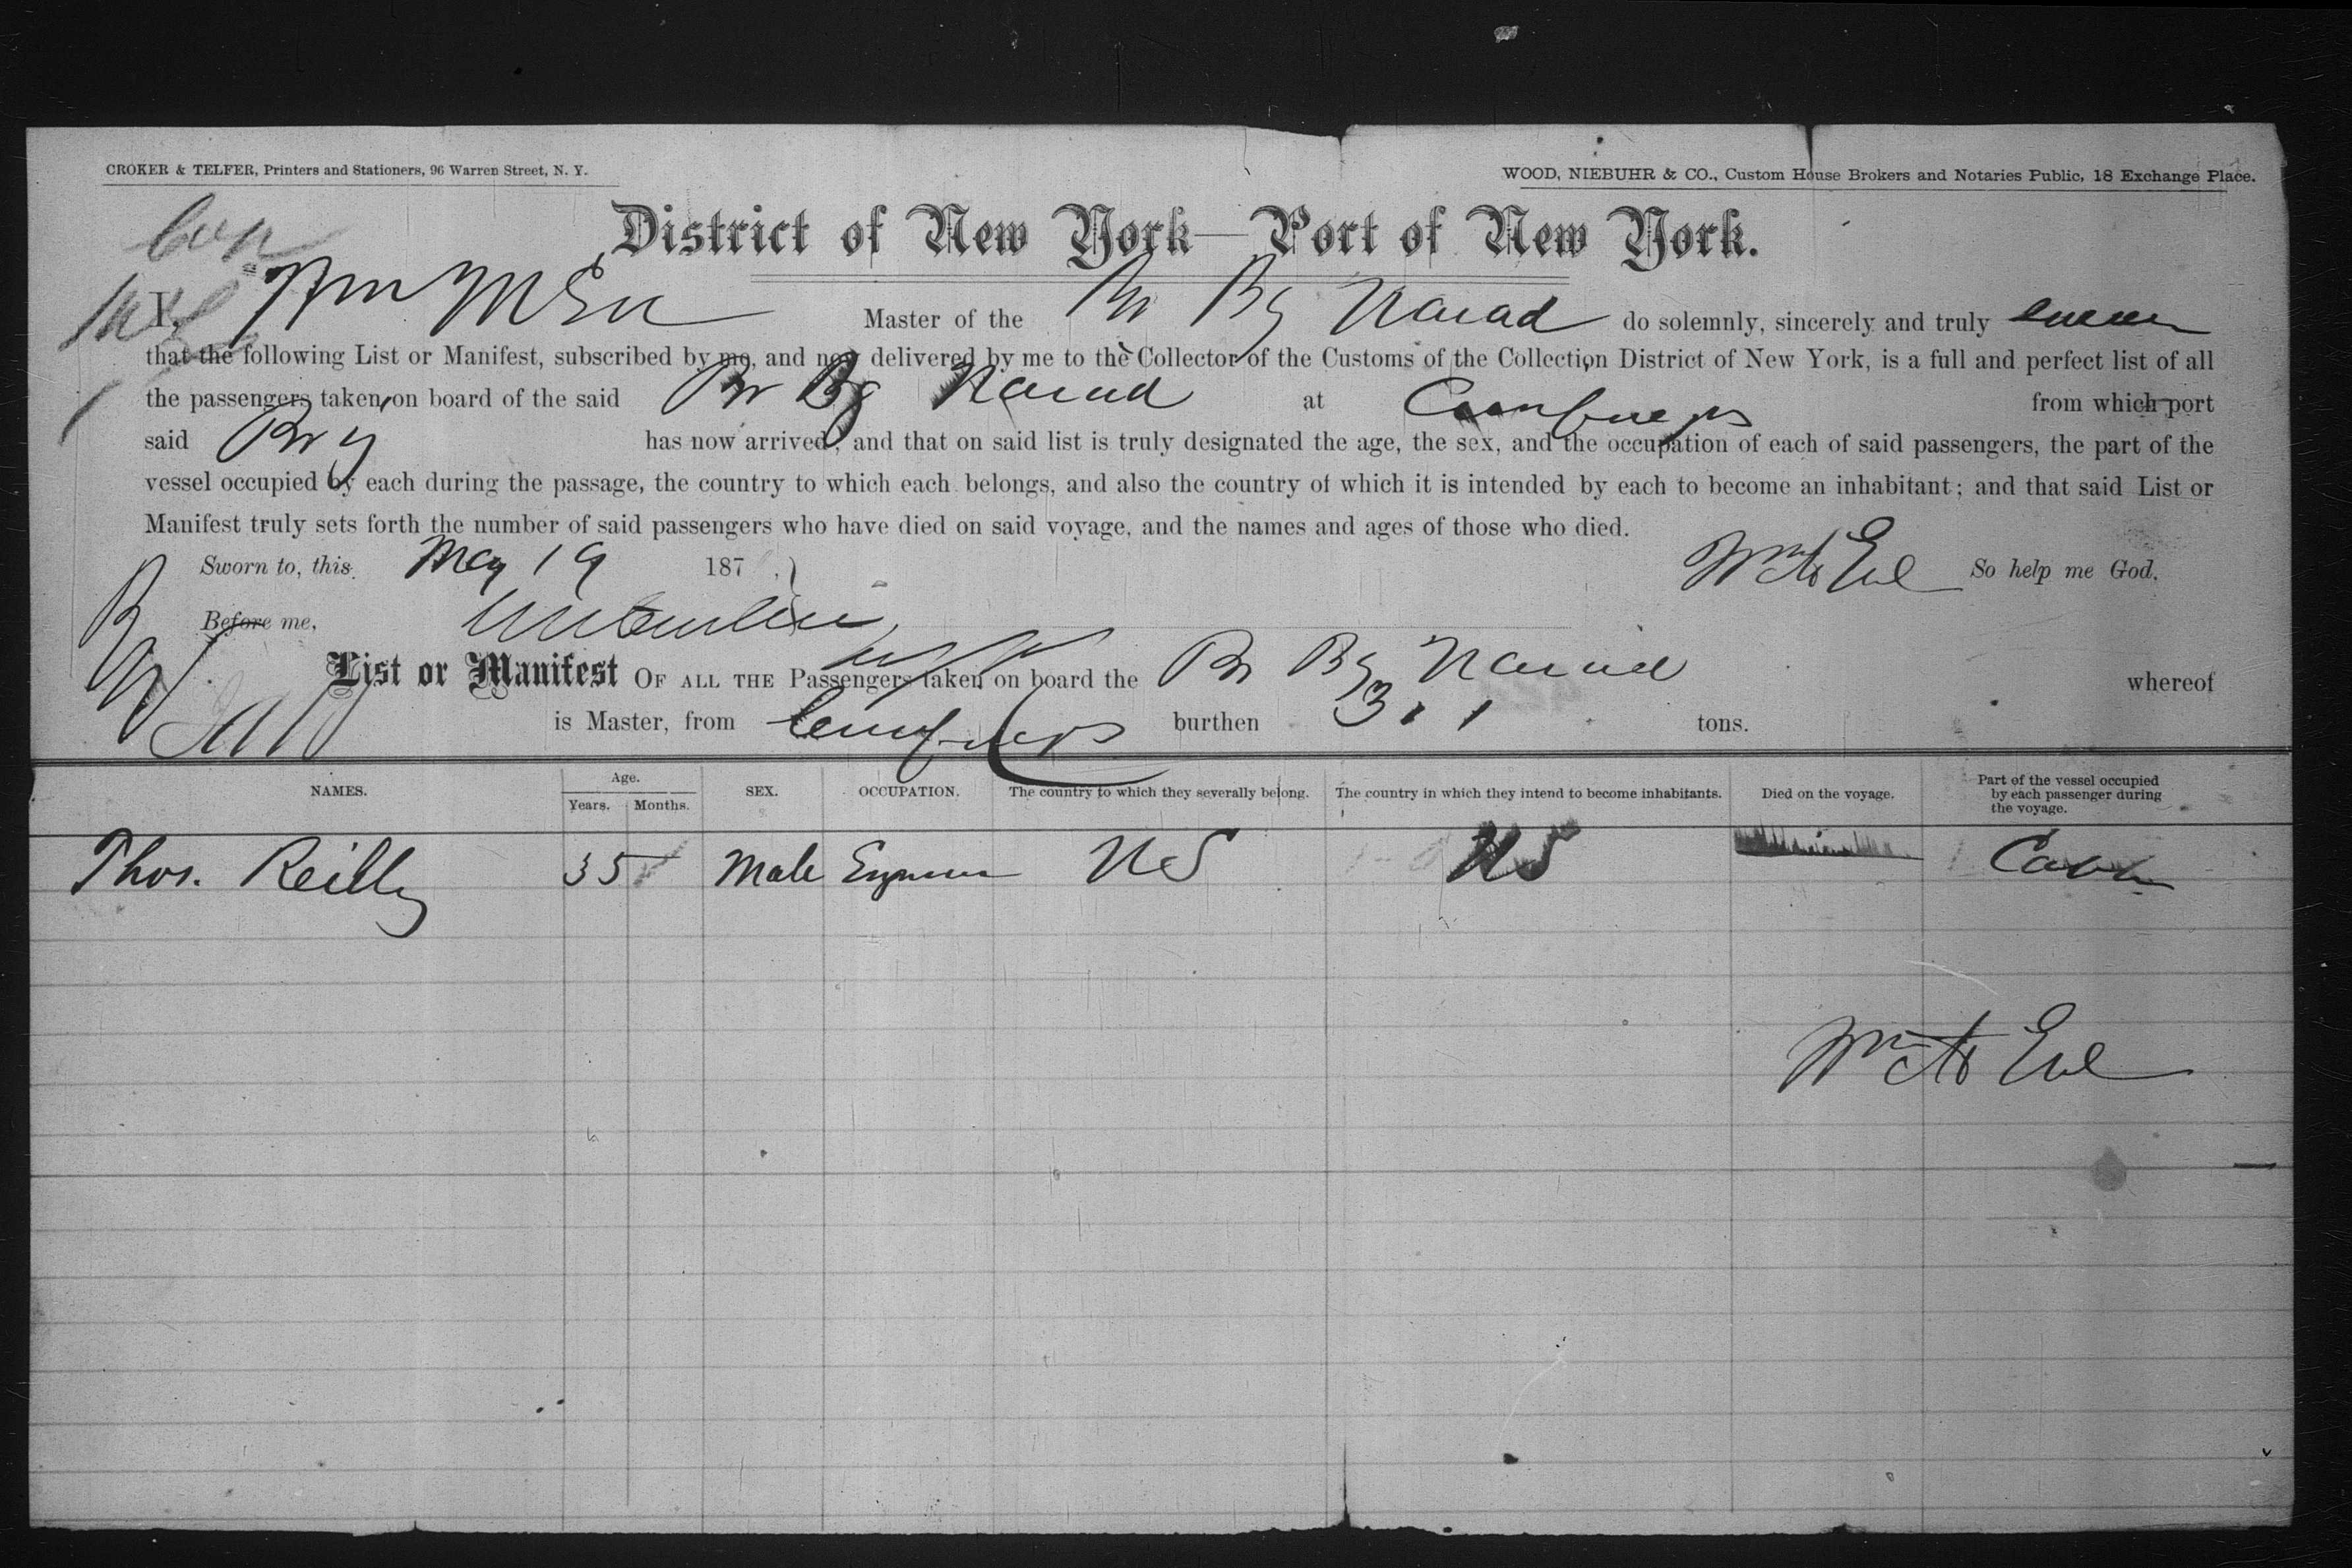 CROKER & TELFER, Printers and Stationers, 96 Warren Street, N. Y.
WOOD, NIEBUHR & CO., Custom House Brokers and Notaries Public, 18 Exchange Place.
District of New York—Port of New York.
I, Wm Master of the Br Bg Narad do solemnly, sincerely and truly swear
that the following List or Manifest, subscribed by me, and now delivered by me to the Collector of the Customs of the Collection District of New York, is a full and perfect list of all
the passengers taken on board of the said Br Bg Narad at Cienfuegos from which port
said Brig has now arrived, and that on said list is truly designated the age, the sex, and the occupation of each of said passengers, the part of the
vessel occupied by each during the passage, the country to which each belongs, and also the country of which it is intended by each to become an inhabitant; and that said List or
Manifest truly sets forth the number of said passengers who have died on said voyage, and the names and ages of those who died.
Sworn to, this May 19 187 So help me God.
Before me,
List or Manifest OF ALL THE Passengers taken on board the Br Bg Narad whereof
is Master, from Cienfuegos burthen 311 tons.
NAMES. Age. Years. Months. SEX. OCCUPATION. The country to which they severally belong. The country in which they intend to become inhabitants. Died on the voyage. Part of the vessel occupied by each passenger during the voyage.
Thos. Reilly 35 Male Engineer US US Cabin